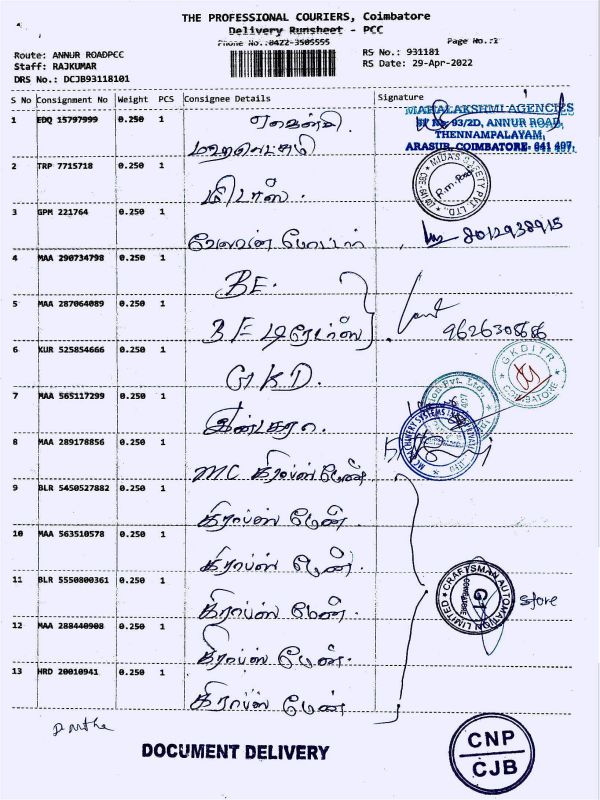 THE PROFESSIONAL COURIERS, Coimbatore
Delivery Runsheet - PCC
Phone No.:0422-3505555
Page No.:1
Route: ANNUR ROADPCC
Staff: RAJKUMAR
DRS No.: DCJB93118101
RS No.: 931181
RS Date: 29-Apr-2022
S No Consignment No Weight PCS Consignee Details Signature
1 EDQ 15797999 0.250 1
மஹாலட்சுமி
MAHALAKSHMI AGENCIES
SF No. 93/2D, ANNUR ROAD,
THENNAMPALAYAM,
ARASUR, COIMBATORE- 641 407.
2 TRP 7715718 0.250 1 மிடாஸ்.
MIDA'S SAFETY PVT. LTD.,
3 GPM 221764 0.250 1
8012938915
4 MAA 290734798 0.250 1 BE.
5 MAA 287064089 0.250 1 BE
9626308686
6 KUR 525854666 0.250 1 GKD.
GKDITR
COIMBATORE
7 MAA 565117299 0.250 1
8 MAA 289178856 0.250 1 MC கிராப்ஸ் மேன்
MC MACHINERY SYSTEMS
9 BLR 5450527882 0.250 1 கிராப்ஸ் மேன்.
10 MAA 563510578 0.250 1 கிராப்ஸ் மேன்.
11 BLR 5550800361 0.250 1 கிராப்ஸ் மேன்.
CRAFTSMAN AUTOMATION LIMITED
COIMBATORE
G1
Store
12 MAA 288440908 0.250 1 கிராப்ஸ் மேன்.
13 HRD 20010941 0.250 1 கிராப்ஸ் மேன்
DOCUMENT DELIVERY
CNP
CJB